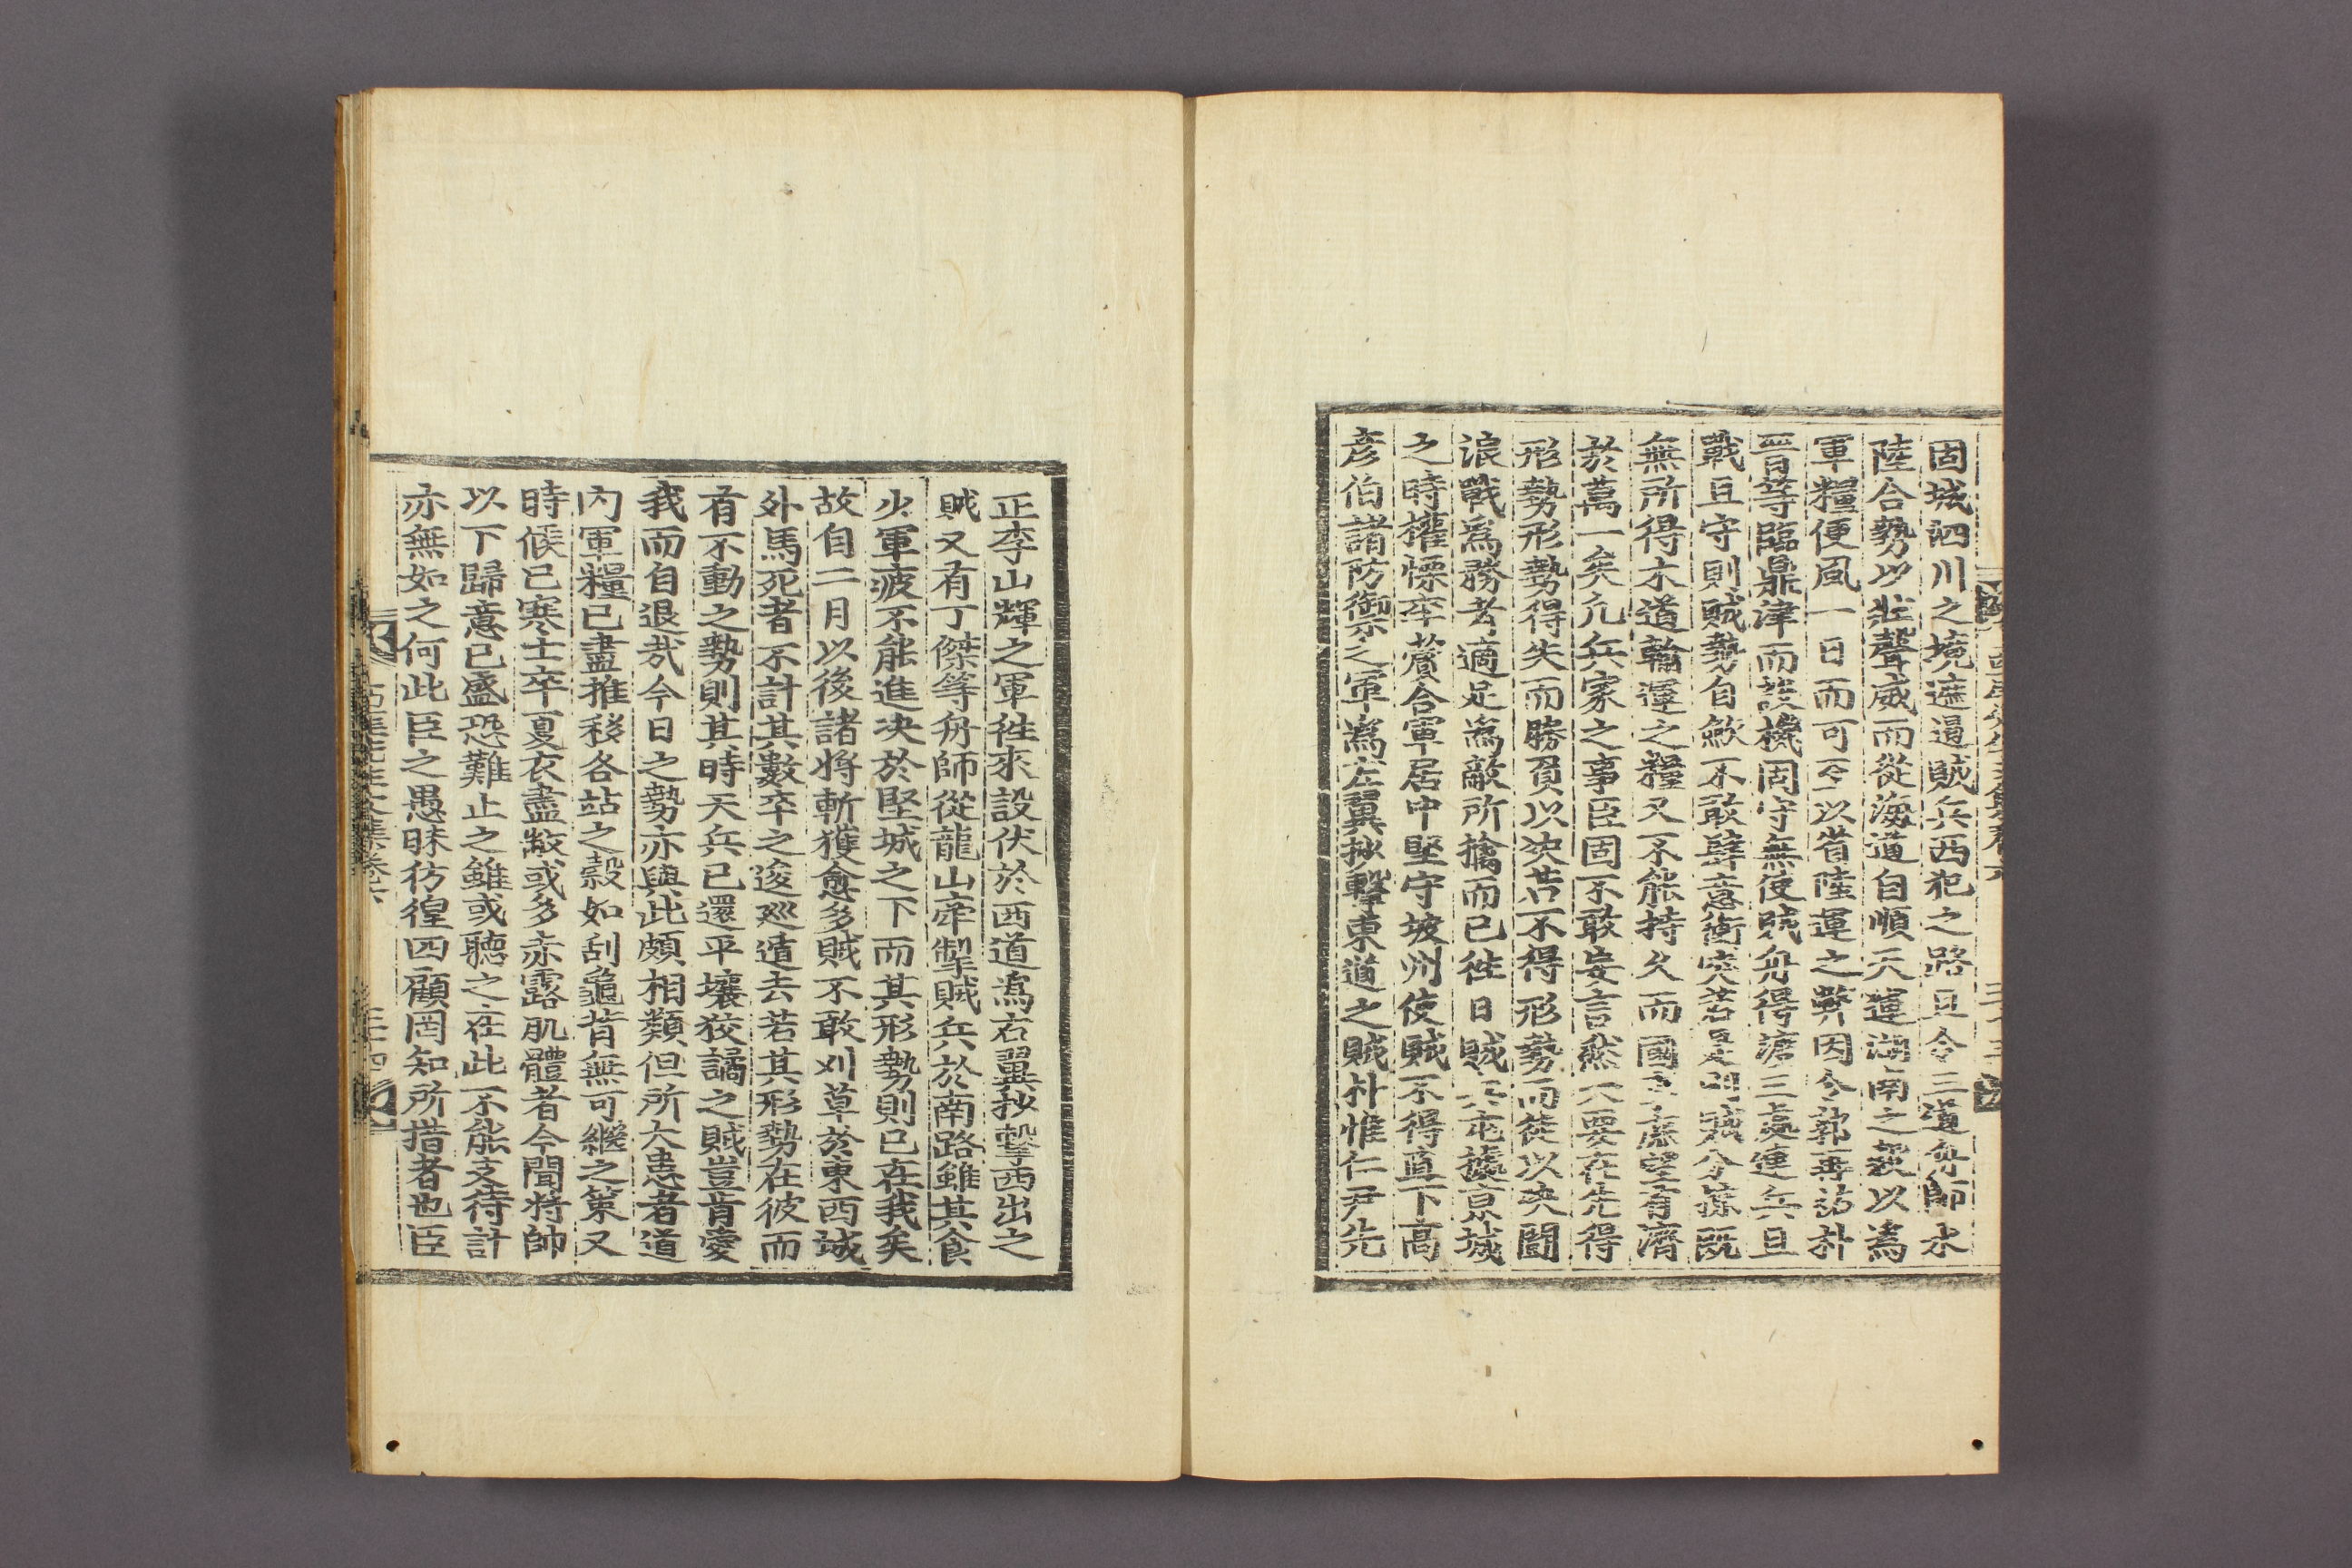 固城泗川之境遮遏賊兵西犯之路且令三道舟師水
陸合勢以壯聲威而從海道自順天運湖南之穀以爲
軍糧便風一日而可至以省陸運之弊因令郭再祐朴
晉等臨鼎津而設機固守無使賊舟得濟三處連兵且
戰且守則賊勢自歛不敢肆意衝突若是則賊分據旣
無所得水道輸運之糧又不能持久而國事庶望有濟
於萬一矣凡兵家之事臣固不敢妄言然大要在先得
形勢形勢得失而勝負以决苟不得形勢而徒以决鬪
浪戰爲勝者適足爲敵所擒而已徃日賊兵屯據京城
之時權慄卒蒼合軍居中堅守坡州使賊不得直下高
彦伯諸防禦之軍爲左翼抄擊東道之賊朴惟仁尹先
正李山輝之軍徃來設伏於西道爲右翼抄擊西出之
賊又有丁傑等舟師從龍山牽掣賊兵於南路雖其食
少軍疲不能進决於堅城之下而其形勢則已在我矣
故自二月以後諸將斬獲愈多賊不敢刈草於東西城
外馬死者不計其數卒之逡巡遁去若其形勢在彼而
有不動之勢則其時天兵已還平壤狡譎之賊豈肯愛
我而自退哉今日之勢亦與此頗相類但所大患者道
內軍糧已盡推移各站之穀如刮龜背無可繼之策又
時候已寒士卒夏衣盡敝或多赤露肌體者今聞將帥
以下歸意已盛恐難止之雖或聽之在此不能支待計
亦無如之何此臣之愚昧彷徨四顧罔知所措者也臣